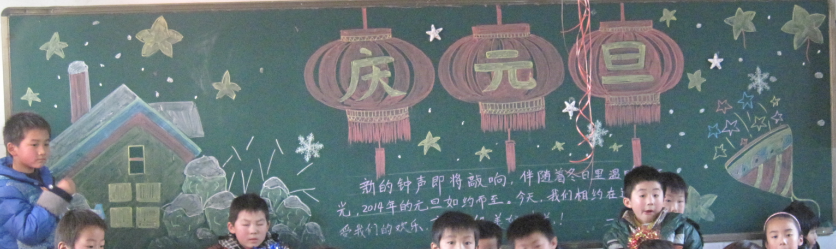 庆元旦
新的钟声即将敲响，伴随着冬日里温
光，2014年的元旦如约而至。今天，我们相约在
我们的欢乐、
！